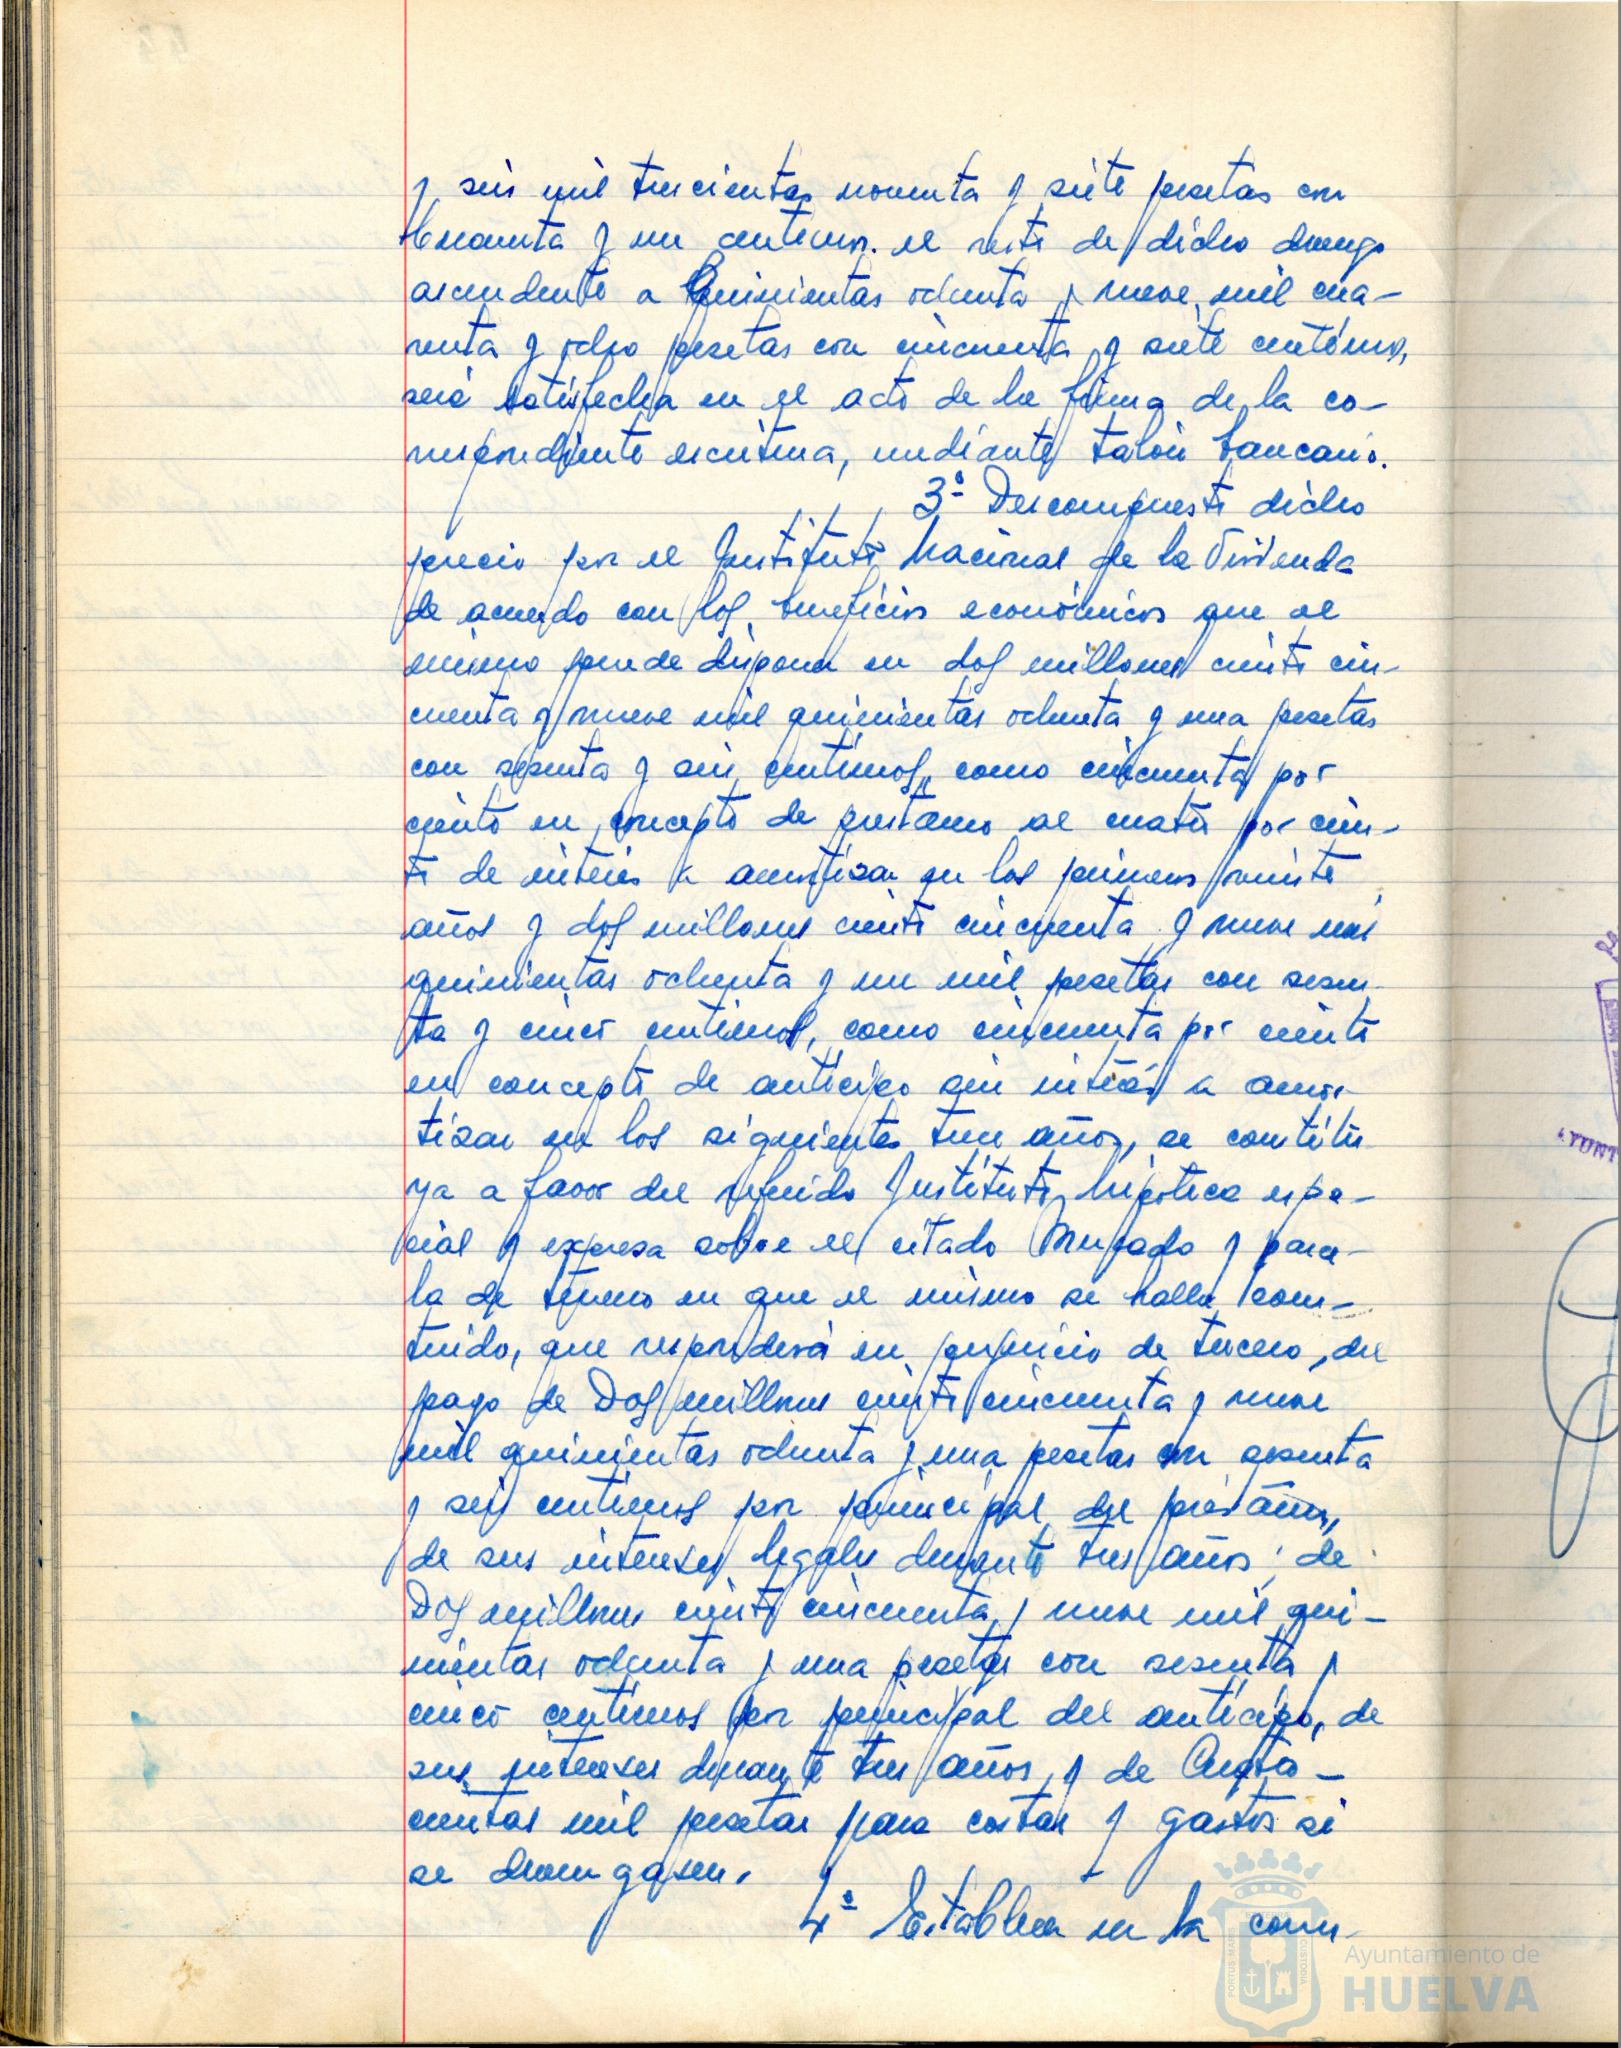 y seis mil trescientas noventa y siete pesetas con
cincuenta y un céntimos. el resto de dicho devengo
ascendente a Quinientas ochenta y nueve mil cua-
renta y ocho pesetas con cincuenta y siete centimos,
será satisfecha en el acto de la firma de la co-
rrespondiente escritura, mediante talón bancario.
3º Descompuesto dicho
precio por el Instituto Nacional de la Vivienda
de acuerdo con los beneficios económicos que el
mismo puede disponer en dos millones ciento cin-
cuenta y nueve mil quinientas ochenta y una pesetas
con sesenta y seis centimos, como cincuenta por
ciento en concepto de prestamo al cuatro por cien-
to de interés a amortizar en los primeros veinte
años y dos millones ciento cincuenta y nueve mil
quinientas ochenta y un mil pesetas con sesen-
ta y cinco centimos, como cincuenta por ciento
en concepto de anticipo sin interés a amor-
tizar en los siguientes tres años, se constitu-
ya a favor del referido Instituto, hipoteca espe-
cial y expresa sobre el citado Mercado y parce-
la de terreno en que el mismo se halla cons-
truido, que responderá en perjuicio de tercero, del
pago de Dos millones ciento cincuenta y nueve
mil quinientas ochenta y una pesetas con sesenta
y seis centimos por principal del préstamo,
de sus intereses legales durante tres años; de
Dos millones ciento cincuenta y nueve mil qui-
nientas ochenta y una pesetas con sesenta y
cinco centimos por principal del anticipo, de
sus intereses durante tres años, y de Cuatro-
cientas mil pesetas para costas y gastos si
se devengasen.
4º Establecer en la
PORTUS MARIS
CUSTODIA
Ayuntamiento de
HUELVA